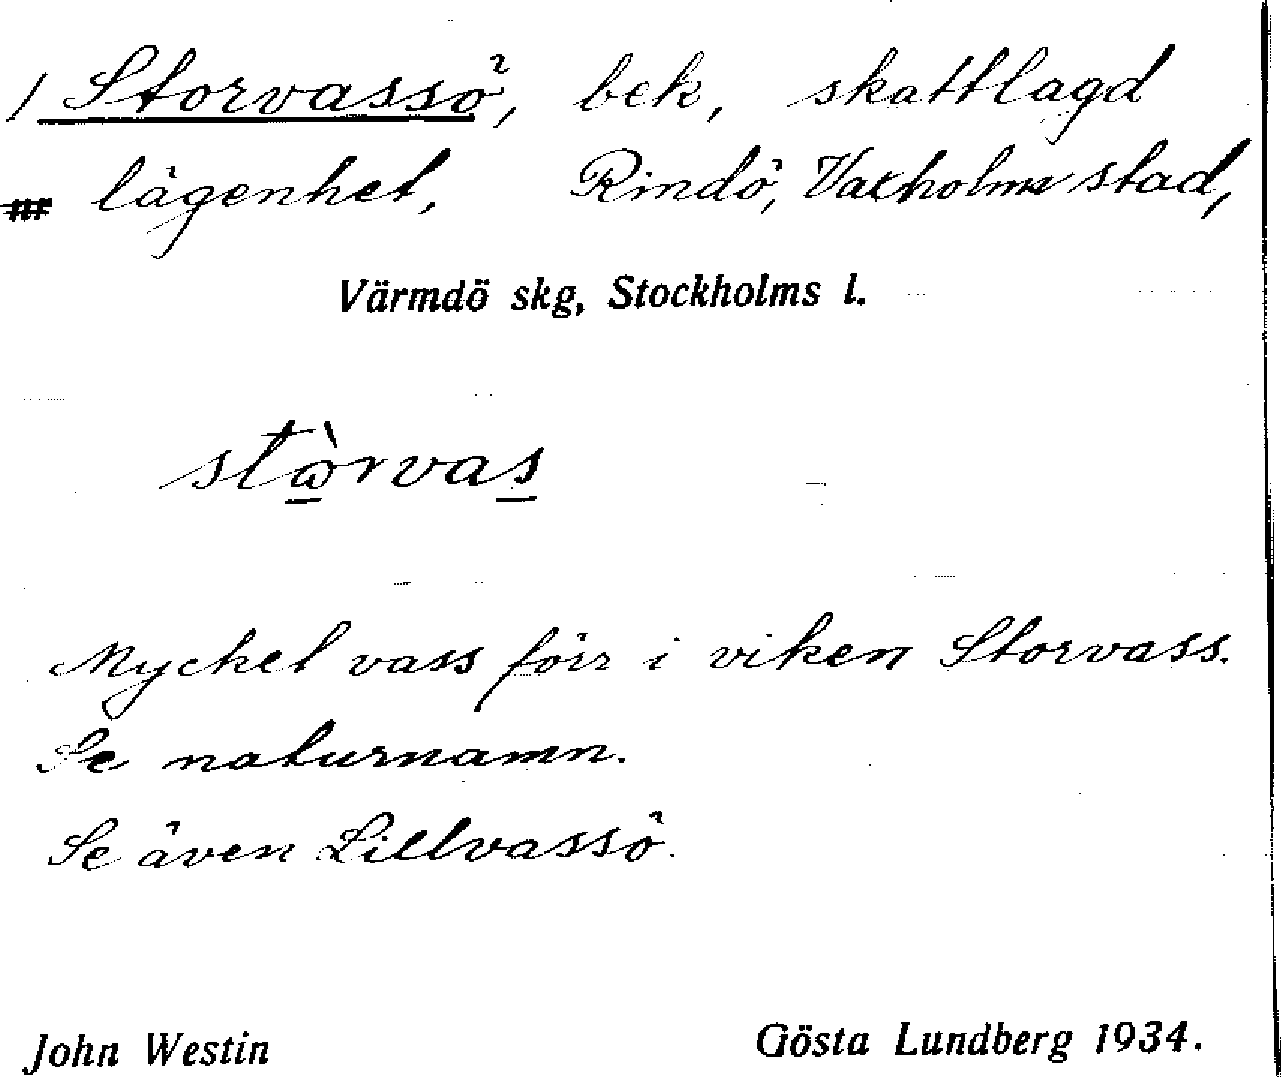 / Storvassö, bek, skattlagd
lägenhet, Rindö, Vaxholms stad,
Värmdö skg, Stockholms l.
stὼrvas
Mycket vass förr i viken Storvass.
Se naturnamn.
Se även Lillvassö.
John Westin Gösta Lundberg 1934.